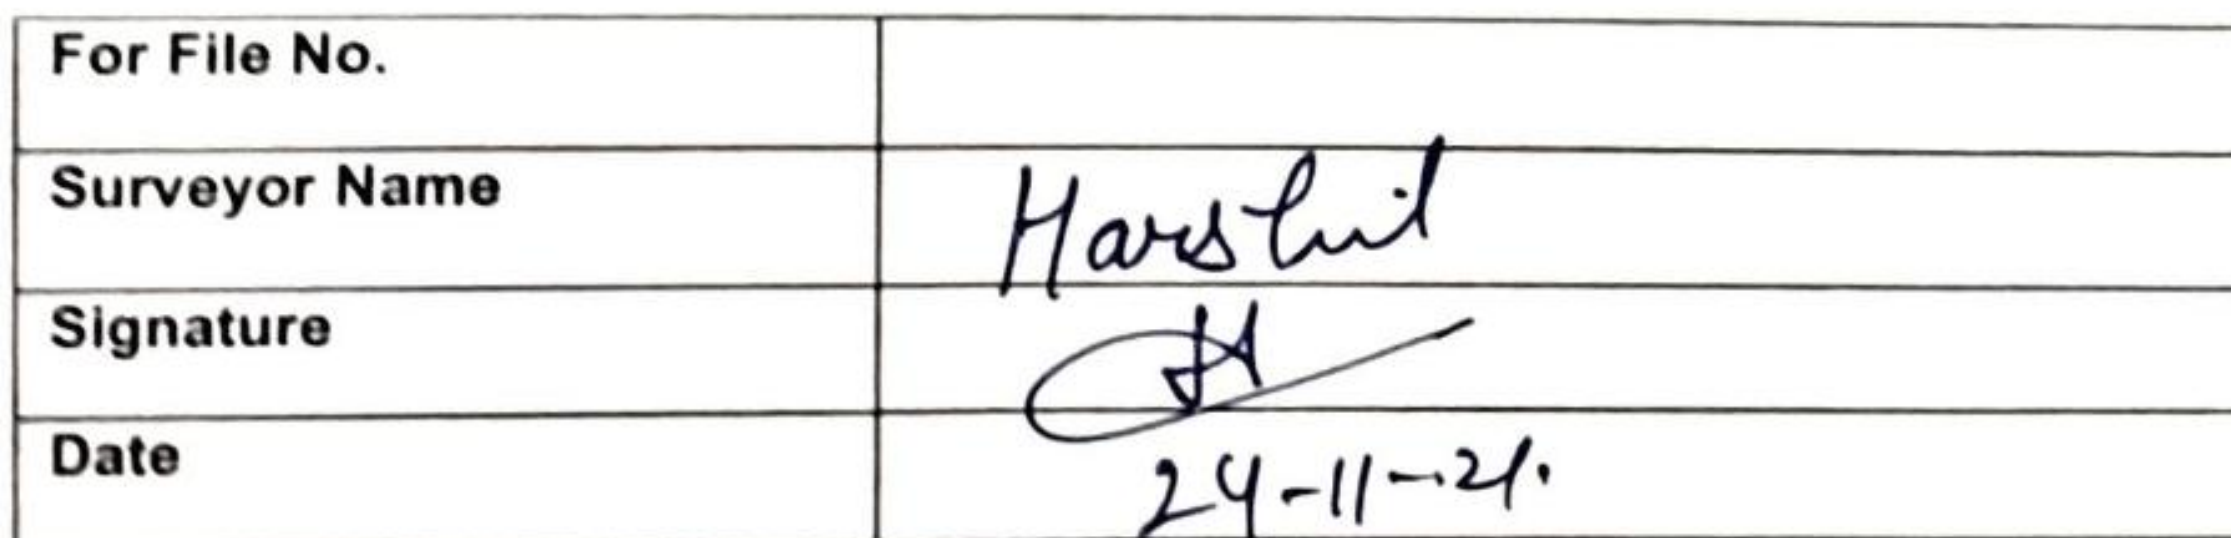 For File No.
Surveyor Name Harshit
Signature H
Date 24-11-21.